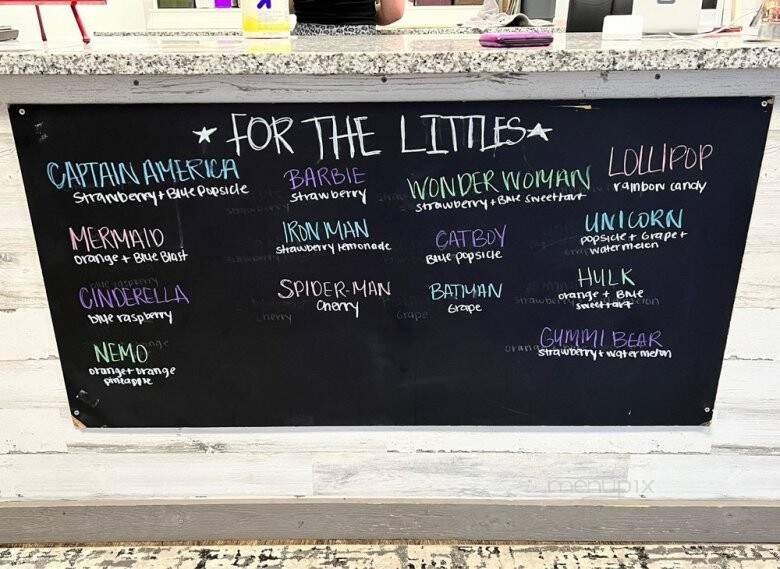 ★ FOR THE LITTLES ★
CAPTAIN AMERICA
Strawberry + Blue Popsicle
MERMAID
orange + Blue Blast
CINDERELLA
blue raspberry
NEMO
orange + orange
pineapple
BARBIE
strawberry
IRON MAN
strawberry lemonade
SPIDER-MAN
Cherry
Cherry
WONDER WOMAN
strawberry + Blue sweettart
CATBOY
Blue popsicle
BATMAN
Grape
Grape
LOLLIPOP
rainbow candy
UNICORN
popsicle + Grape +
watermelon
HULK
orange + Blue
sweettart
GUMMI BEAR
strawberry + watermelon
menupix